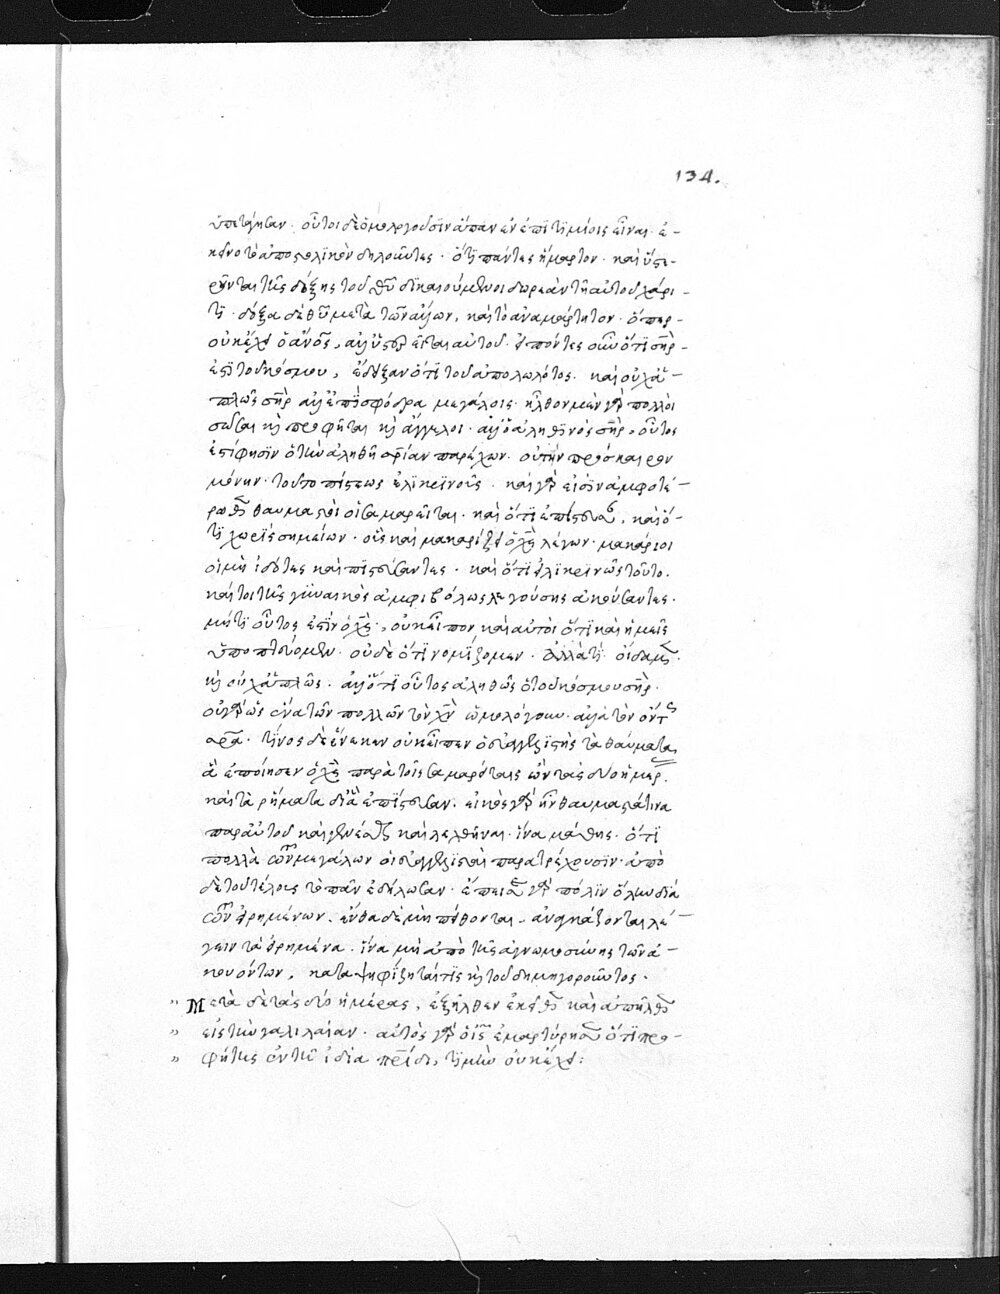 134.
ὑπετάγησαν. οὗτοι δὲ ὁμολογοῦσιν ἅπαν ἐν ἐπιτιμίοις εἶναι. ἐ-
κεῖνο τὸ ἀποστολικὸν δηλοῦντες. ὅτι πάντες ἥμαρτον. καὶ ὑστε-
ροῦνται τῆς δόξης τοῦ θῦ δικαιούμενοι δωρεὰν τῇ αὐτοῦ χάρι-
τι. δόξα δὲ θῦ μετὰ τῶν ἄλλων, καὶ τὸ ἀναμάρτητον. ὅπερ
οὐκ ἔχει ὁ ἄνος, ἀλλ' ὑστερεῖται αὐτοῦ. εἰπόντες οὖν ὅτι σηρ
ἐστὶ τοῦ κόσμου, ἔδειξαν ὅτι τοῦ ἀπολωλότος. καὶ οὐχ ἁ-
πλῶς σηρ ἀλλ' ἐπὶ σφόδρα μεγάλοις. ἦλθον μὲν γὰρ πολλοὶ
σῶσαι καὶ προφῆται καὶ ἄγγελοι. ἀλλ' ὁ ἀληθινὸς σηρ, οὗτος
ἐστί φησιν ὁ τὴν ἀληθῆ σρίαν παρέχων. οὐ τὴν πρόσκαιρον
μόνην. τοῦτο πίστεως εἰλικρινοῦς. καὶ γὰρ εἰσὶν ἀμφοτέ-
ρωθεν θαυμαστοὶ οἱ σαμαρεῖται. καὶ ὅτι ἐπίστευσαν, καὶ ὅ-
τι χωρὶς σημείων. οὓς καὶ μακαρίζει ὁ χς λέγων. μακάριοι
οἱ μὴ ἰδόντες καὶ πιστεύσαντες. καὶ ὅτι εἰλικρινῶς τοῦτο.
καίτοι τῆς γυναικὸς ἀμφιβόλως λεγούσης ἀκούσαντες.
μήτι οὗτος ἐστὶν ὁ χς, οὐκ εἶπον καὶ αὐτοὶ ὅτι καὶ ἡμεῖς
ὑποπτεύομεν. οὐδὲ ὅτι νομίζομεν. ἀλλὰ τί. οἴδαμεν.
καὶ οὐχ ἁπλῶς. ἀλλ' ὅτι οὗτος ἀληθῶς ὁ τοῦ κόσμου σηρ.
οὐ γὰρ ὡς ἕνα τῶν πολλῶν τὸν χν ὡμολόγουν. ἀλλὰ τὸν ὄντως
σρα. τίνος δὲ ἕνεκεν οὐκ εἶπεν ὁ εὐαγγελιστὴς τὰ θαύματα,
ἃ ἐποίησεν ὁ χς παρὰ τοῖς σαμαρείταις ὢν τὰς δύο ἡμερ.
καὶ τὰ ῥήματα δι' ἃ ἐπίστευσαν. εἰκὸς γὰρ ἦν θαυμαστά τινα
παρ' αὐτοῦ καὶ γενέσθαι καὶ λελέχθαι. ἵνα μάθῃς. ὅτι
πολλὰ τῶν μεγάλων οἱ εὐαγγελισταὶ παρατρέχουσιν. ἀπὸ
δὲ τοῦ τέλους τὸ πᾶν ἐδήλωσαν. ἔπεισαν γὰρ πόλιν ὅλην διὰ
τῶν εἰρημένων. ἔνθα δὲ μὴ πείθονται. ἀναγκάζονται λέ-
γειν τὰ εἰρημένα. ἵνα μὴ ἀπὸ τῆς ἀγνωμοσύνης τῶν ἀ-
κουόντων, καταψηφίζηταί τις καὶ τοῦ δημηγοροῦντος.
" Μετὰ δὲ τὰς δύο ἡμέρας, ἐξῆλθεν ἐκεῖθεν καὶ ἀπῆλθεν
" εἰς τὴν γαλιλαίαν. αὐτὸς γὰρ ὁ ις ἐμαρτύρησεν ὅτι προ-
" φήτης ἐν τῇ ἰδίᾳ πρίδι, τιμὴν οὐκ ἔχει: